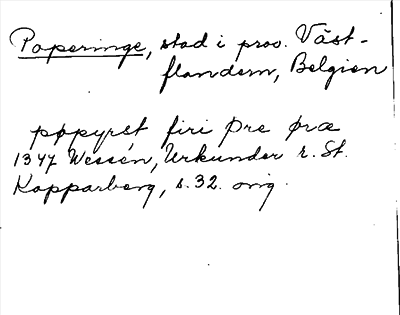 Poperinge, stad i prov. Väst-
flandern, Belgien
pøpyrst firi þre øræ
1347 Wessén, Urkunder r. St.
Kopparberg, s. 32. orig.